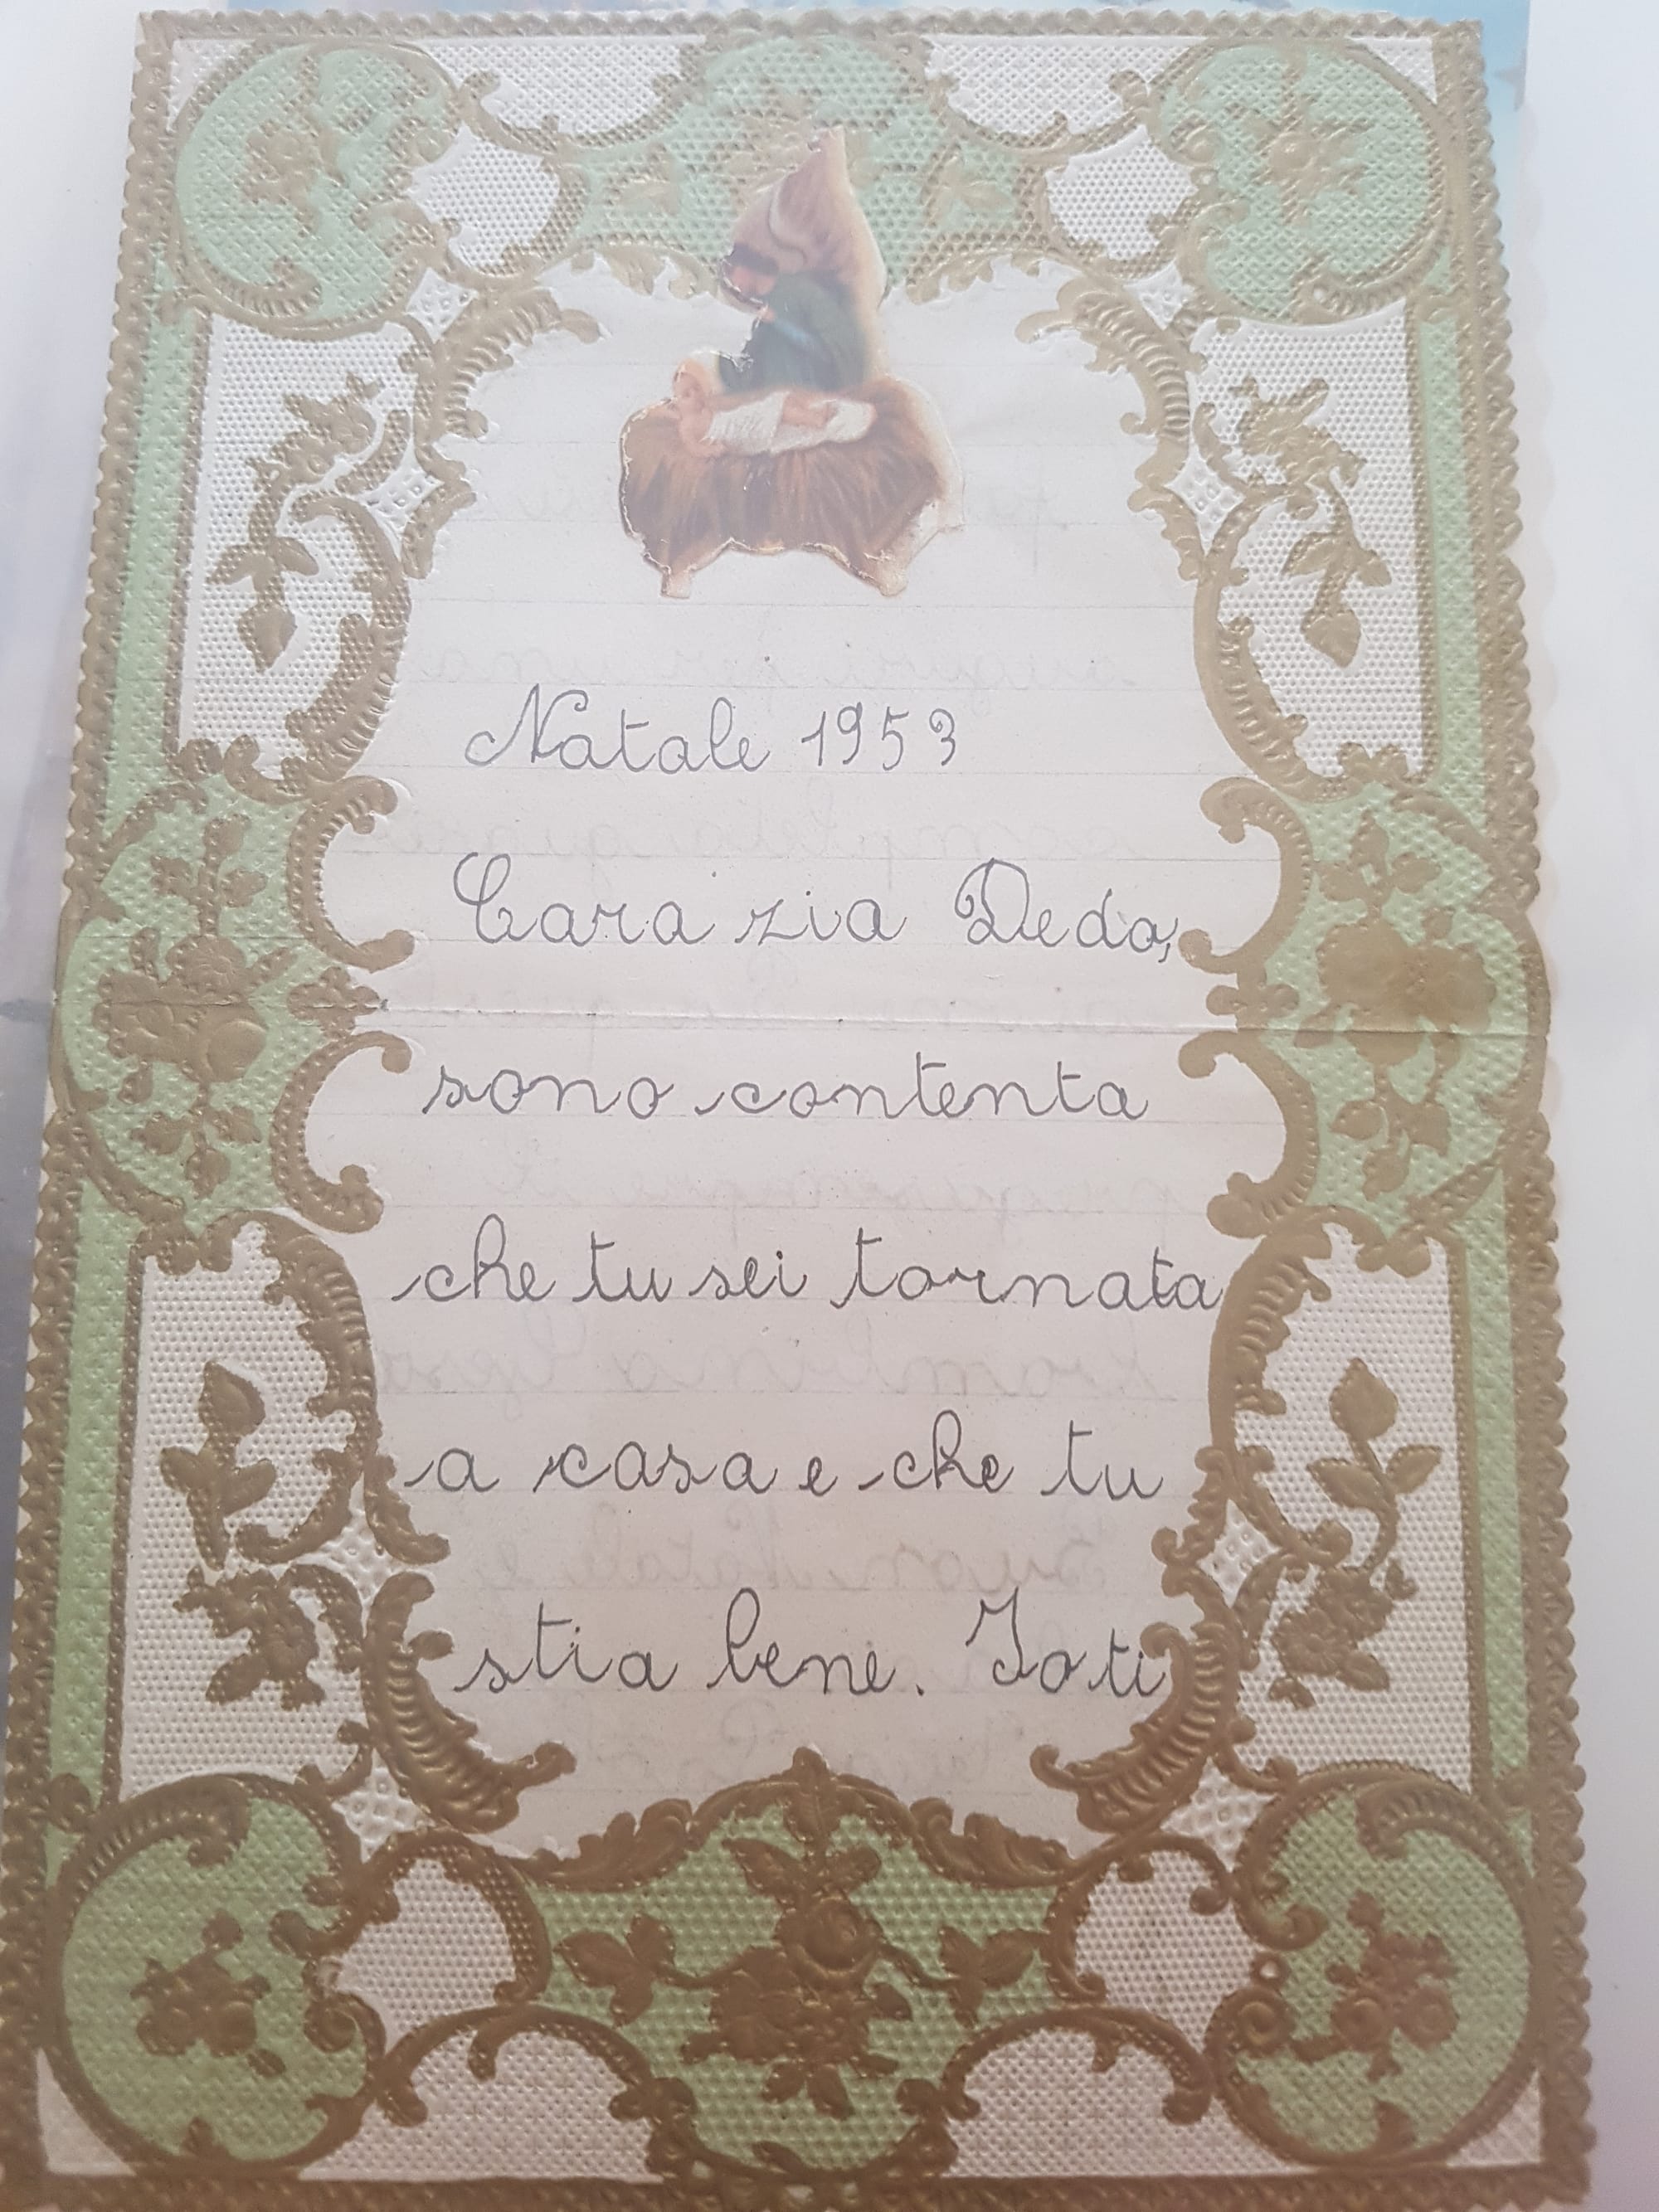 Natale 1953
Cara zia Deda,
sono contenta
che tu sei tornata
a casa e che tu
stia bene. Io ti